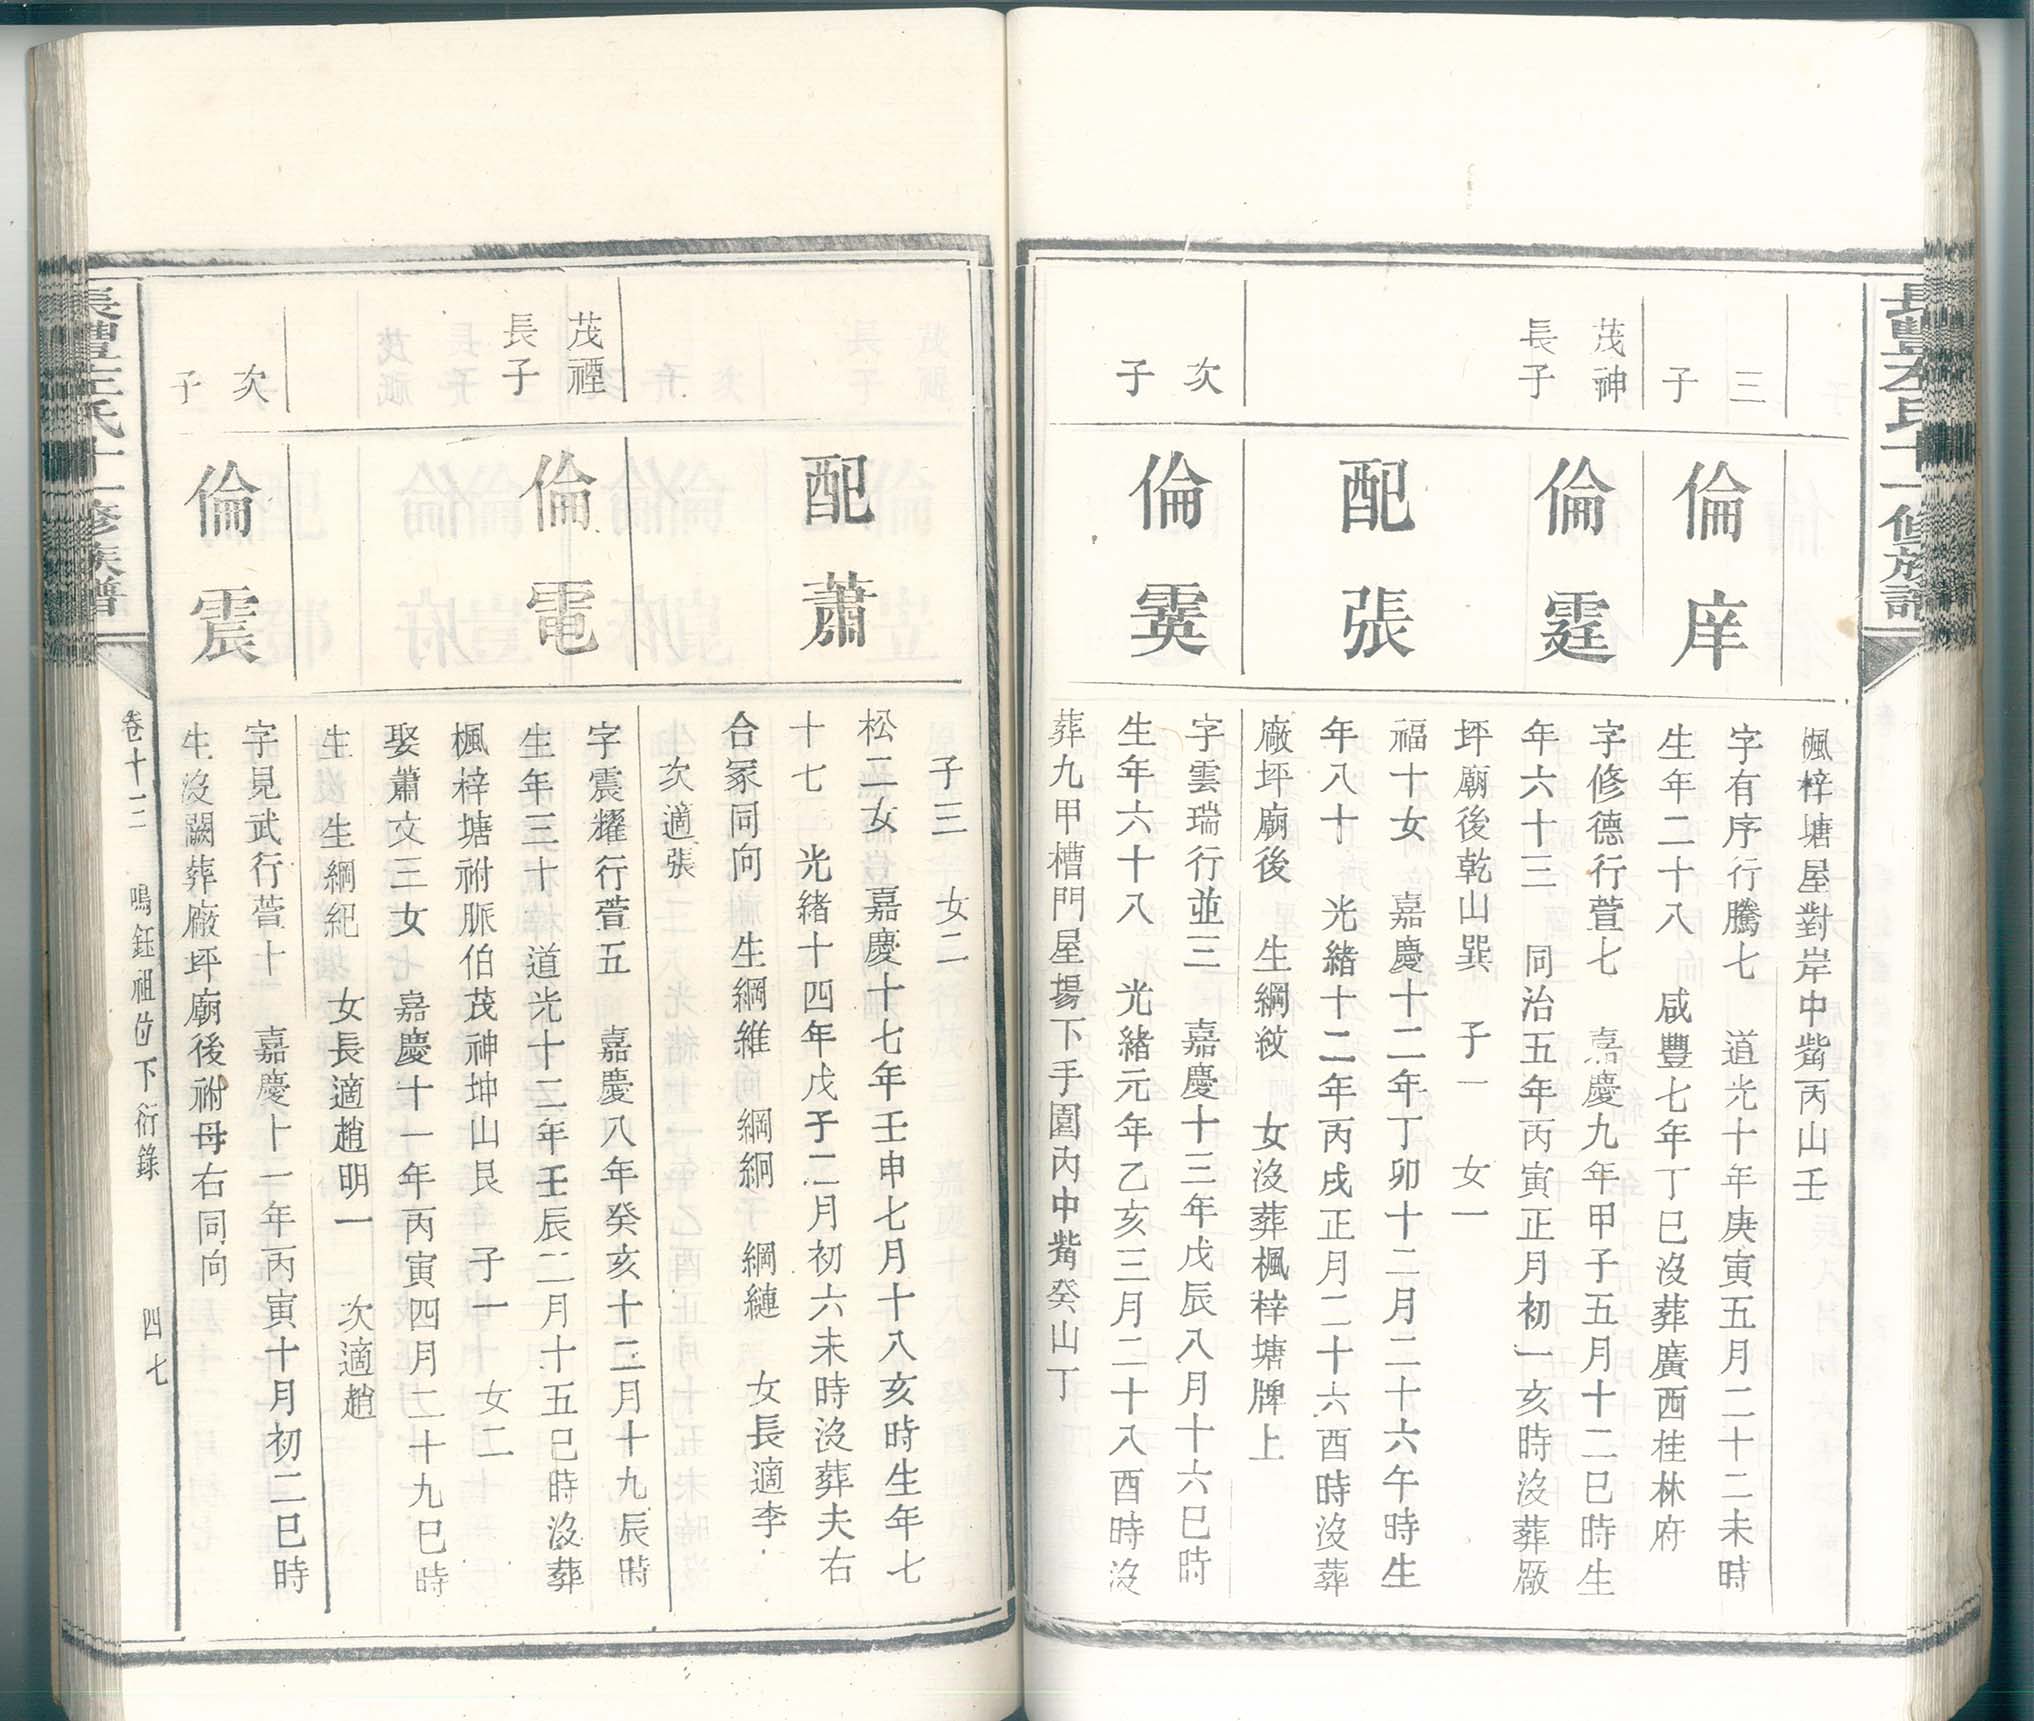 長豐左氏十一修族譜
楓梓塘屋對岸中嘴丙山壬
三子
倫庠
字有序行騰七 道光十年庚寅五月二十二未時
生年二十八 咸豐七年丁巳沒葬廣西桂林府
茂神長子
倫霆
字修德行萱七 嘉慶九年甲子五月十二巳時生
年六十三 同治五年丙寅正月初一亥時沒葬廠
坪廟後乾山巽 子一 女一
配張
福十女 嘉慶十二年丁卯十二月二十六午時生
年八十 光緒十二年丙戌正月二十六酉時沒葬
廠坪廟後 生綱紋 女沒葬楓梓塘牌上
次子
倫霙
字雲瑞行並三 嘉慶十三年戊辰八月十六巳時
生年六十八 光緒元年乙亥三月二十八酉時沒
葬九甲槽門屋場下手園內中嘴癸山丁
子三 女二
配蕭
松二女 嘉慶十七年壬申七月十八亥時生年七
十七 光緒十四年戊子二月初六未時沒葬夫右
合冢同向 生綱維 綱絅 綱縺 女長適李
次適張
茂禋長子
倫電
字震耀行萱五 嘉慶八年癸亥十二月十九辰時
生年三十 道光十二年壬辰二月十五巳時沒葬
楓梓塘祔脈伯茂神坤山艮 子一 女二
娶蕭文三女 嘉慶十一年丙寅四月二十九巳時
生 生綱紀 女長適趙明一 次適趙
次子
倫震
字見武行萱十 嘉慶十一年丙寅十月初二巳時
生沒闕葬廠坪廟後祔母右同向
長豐左氏十一修族譜
卷十三 鳴鈺祖位下衍錄 四七